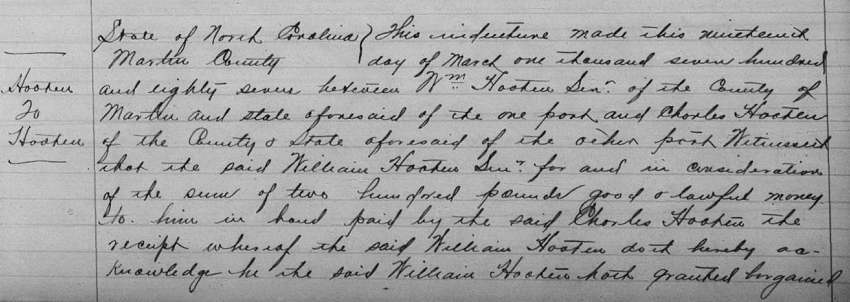 State of North Carolina } This indenture made this nineteenth
Martin County day of March one thousand seven hundred
and eighty seven between Wm Hooten Senr. of the County of
Hooten
To
Hooten
Martin and state aforesaid of the one part and Charles Hooten
of the County & State aforesaid of the other part Witnesseth
that the said William Hooten Senr. for and in consideration
of the sum of two hundred pounds good & lawful money
to him in hand paid by the said Charles Hooten the
receipt whereof the said William Hooten doth hereby ac-
knowledge he the said William Hooten hath granted bargained